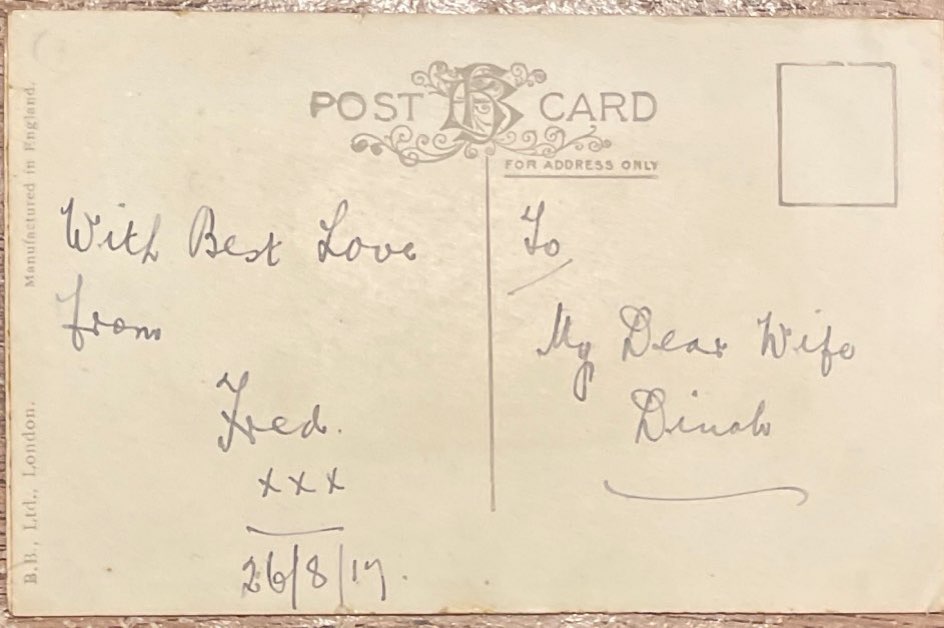 POST CARD
FOR ADDRESS ONLY
Manufactured in England.
B.B., Ltd., London.
With Best Love
from
Fred.
x x x
26/8/17.
To
My Dear Wife
Dinah